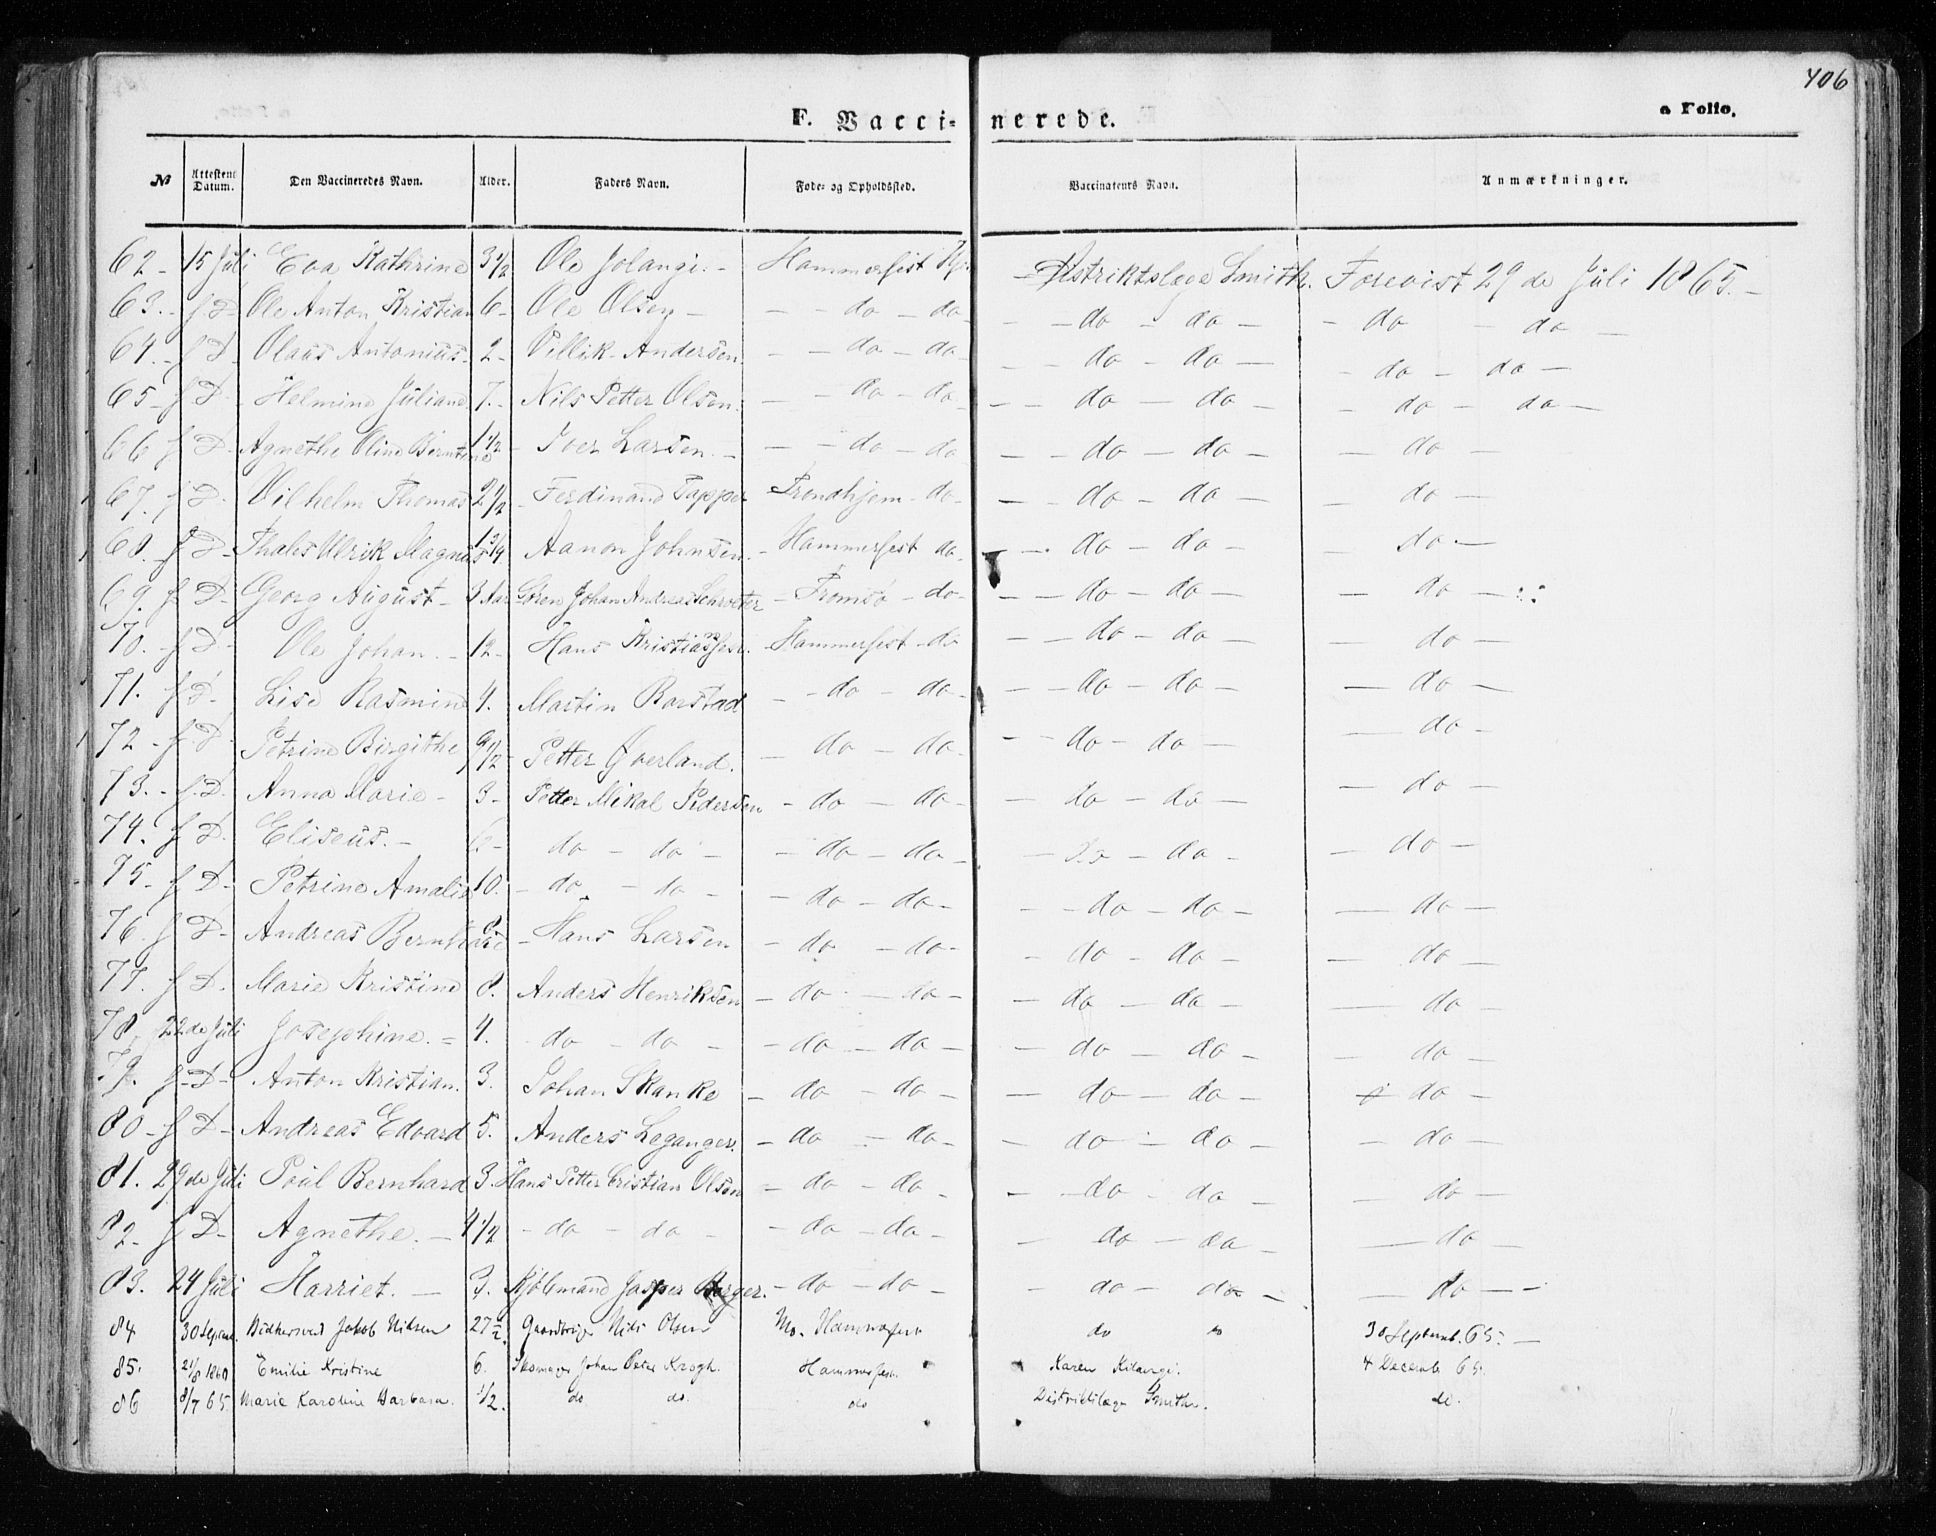 406
F. Vacci- nerede.
a Folio.
№ Attestens Datum. Den Vaccineredes Navn. Alder. Faders Navn. Føde- og Opholdssted. Vaccinateurs Navn. Anmærkninger.
62 - 15 Juli Eva Kathrine 3 1/2 Ole Jolangi. - Hammerfest - Distriktslæge Smith. Forevist 29 de Juli 1865. -
63. - f D - Ole Anton Kristian 6 - Ole Olsen - - - do - do - - - do - do - - do - do -
64. - f D - Olaus Antonius - 2 - Pellik Andersen. - - do - do - - - do - do - - do - do -
65 - f D - Helmine Juliane 7. - Nils Petter Olsen. - - do - do - - - do - do - - do - do -
66 f D - Agnethe Oline Berntine 1 1/2 - Iver Larsen. - - - do - do - - do - do - - do -
67. f D - Vilhelm Thomas 2 1/2 - Ferdinand Tapper - Trondhjem - do - - - do - do - - do -
68. f D - Thales Ulrik Magnus 1 3/4 Aanon Johnsen. - Hammerfest do - - - do - do - - do -
69. f D - Georg August - 3 Aar Sören Johan Andreas Schrøter - Tromsø - do - - - do - do - - do -
70. - f D - Ole Johan. - 12 - Hans Kristiansen. - Hammerfest - do - - do - do - - do -
71. f D - Lise Rasmine 4. Martin Barstad - - do - do - - - do - do - - do -
72 - f D - Petrine Birgithe 9 1/2 Petter Øverland. - do - do - - - do - do - - do -
73. - f. D. Anna Marie - 3 - Petter Mikal Pedersen - do - do - - do - do - - do -
74. f D - Eliseus. - do - do - - do - do - - do - do - - do -
75 - f D - Petrine Amalie 10. - do - do - - do - do - - - do - do - - do -
76. f D - Andreas Bernhard 8 - Hans Larsen - do - do - - do - do - - do -
77. f D. Marie Kristine 8. Anders Henriksen - do - do - - do - do - - do -
78. 22 de Juli Josephine. = 4. do - do - - do - do - - do - do - - do -
79. f - D - Anton Kristian. 3. Johan Skanke - do - do - - do - do - do -
80 - f D - Andreas Edvard 5. Anders Leganger. - do - do - - do - do - - do -
81. 29 de Juli Poul Bernhard 3. Hans Petter Cristian Olsen - do - do - - do - do - - do -
82 - f D - Agnethe. - 4 1/2 - do - do - - do - do - - do - do - - do -
83. 24 Juli Harriet. - 3. Kjøbmand Jasper Berger. - do - do - - do - do - - do - -
84 30 Septemb. Jakob Nilsen 27 1/2. Nils Olsen Hammerfest do do 30 Septemb. 65. -
85. 21/8 1860 Emilie Kristine 6. Johan Peter Krogh. Hammerfest. Karen Kilangi. 4 Decemb 65.
86 8/7 65. Marie Karoline Barbara. 1/2. do do. do Distriktslæge Smith. do.